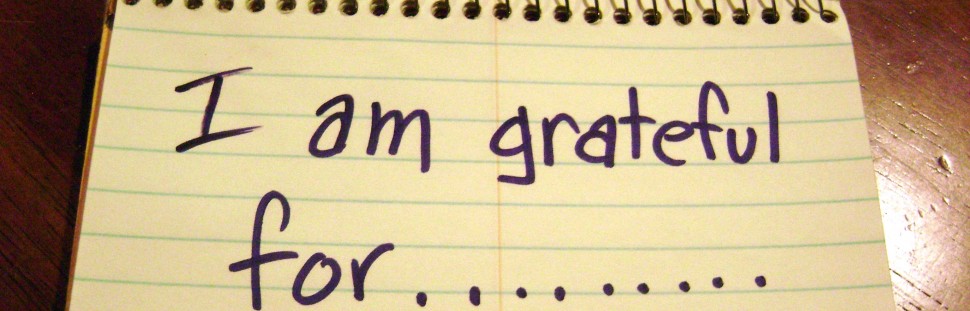 I am grateful
for.........